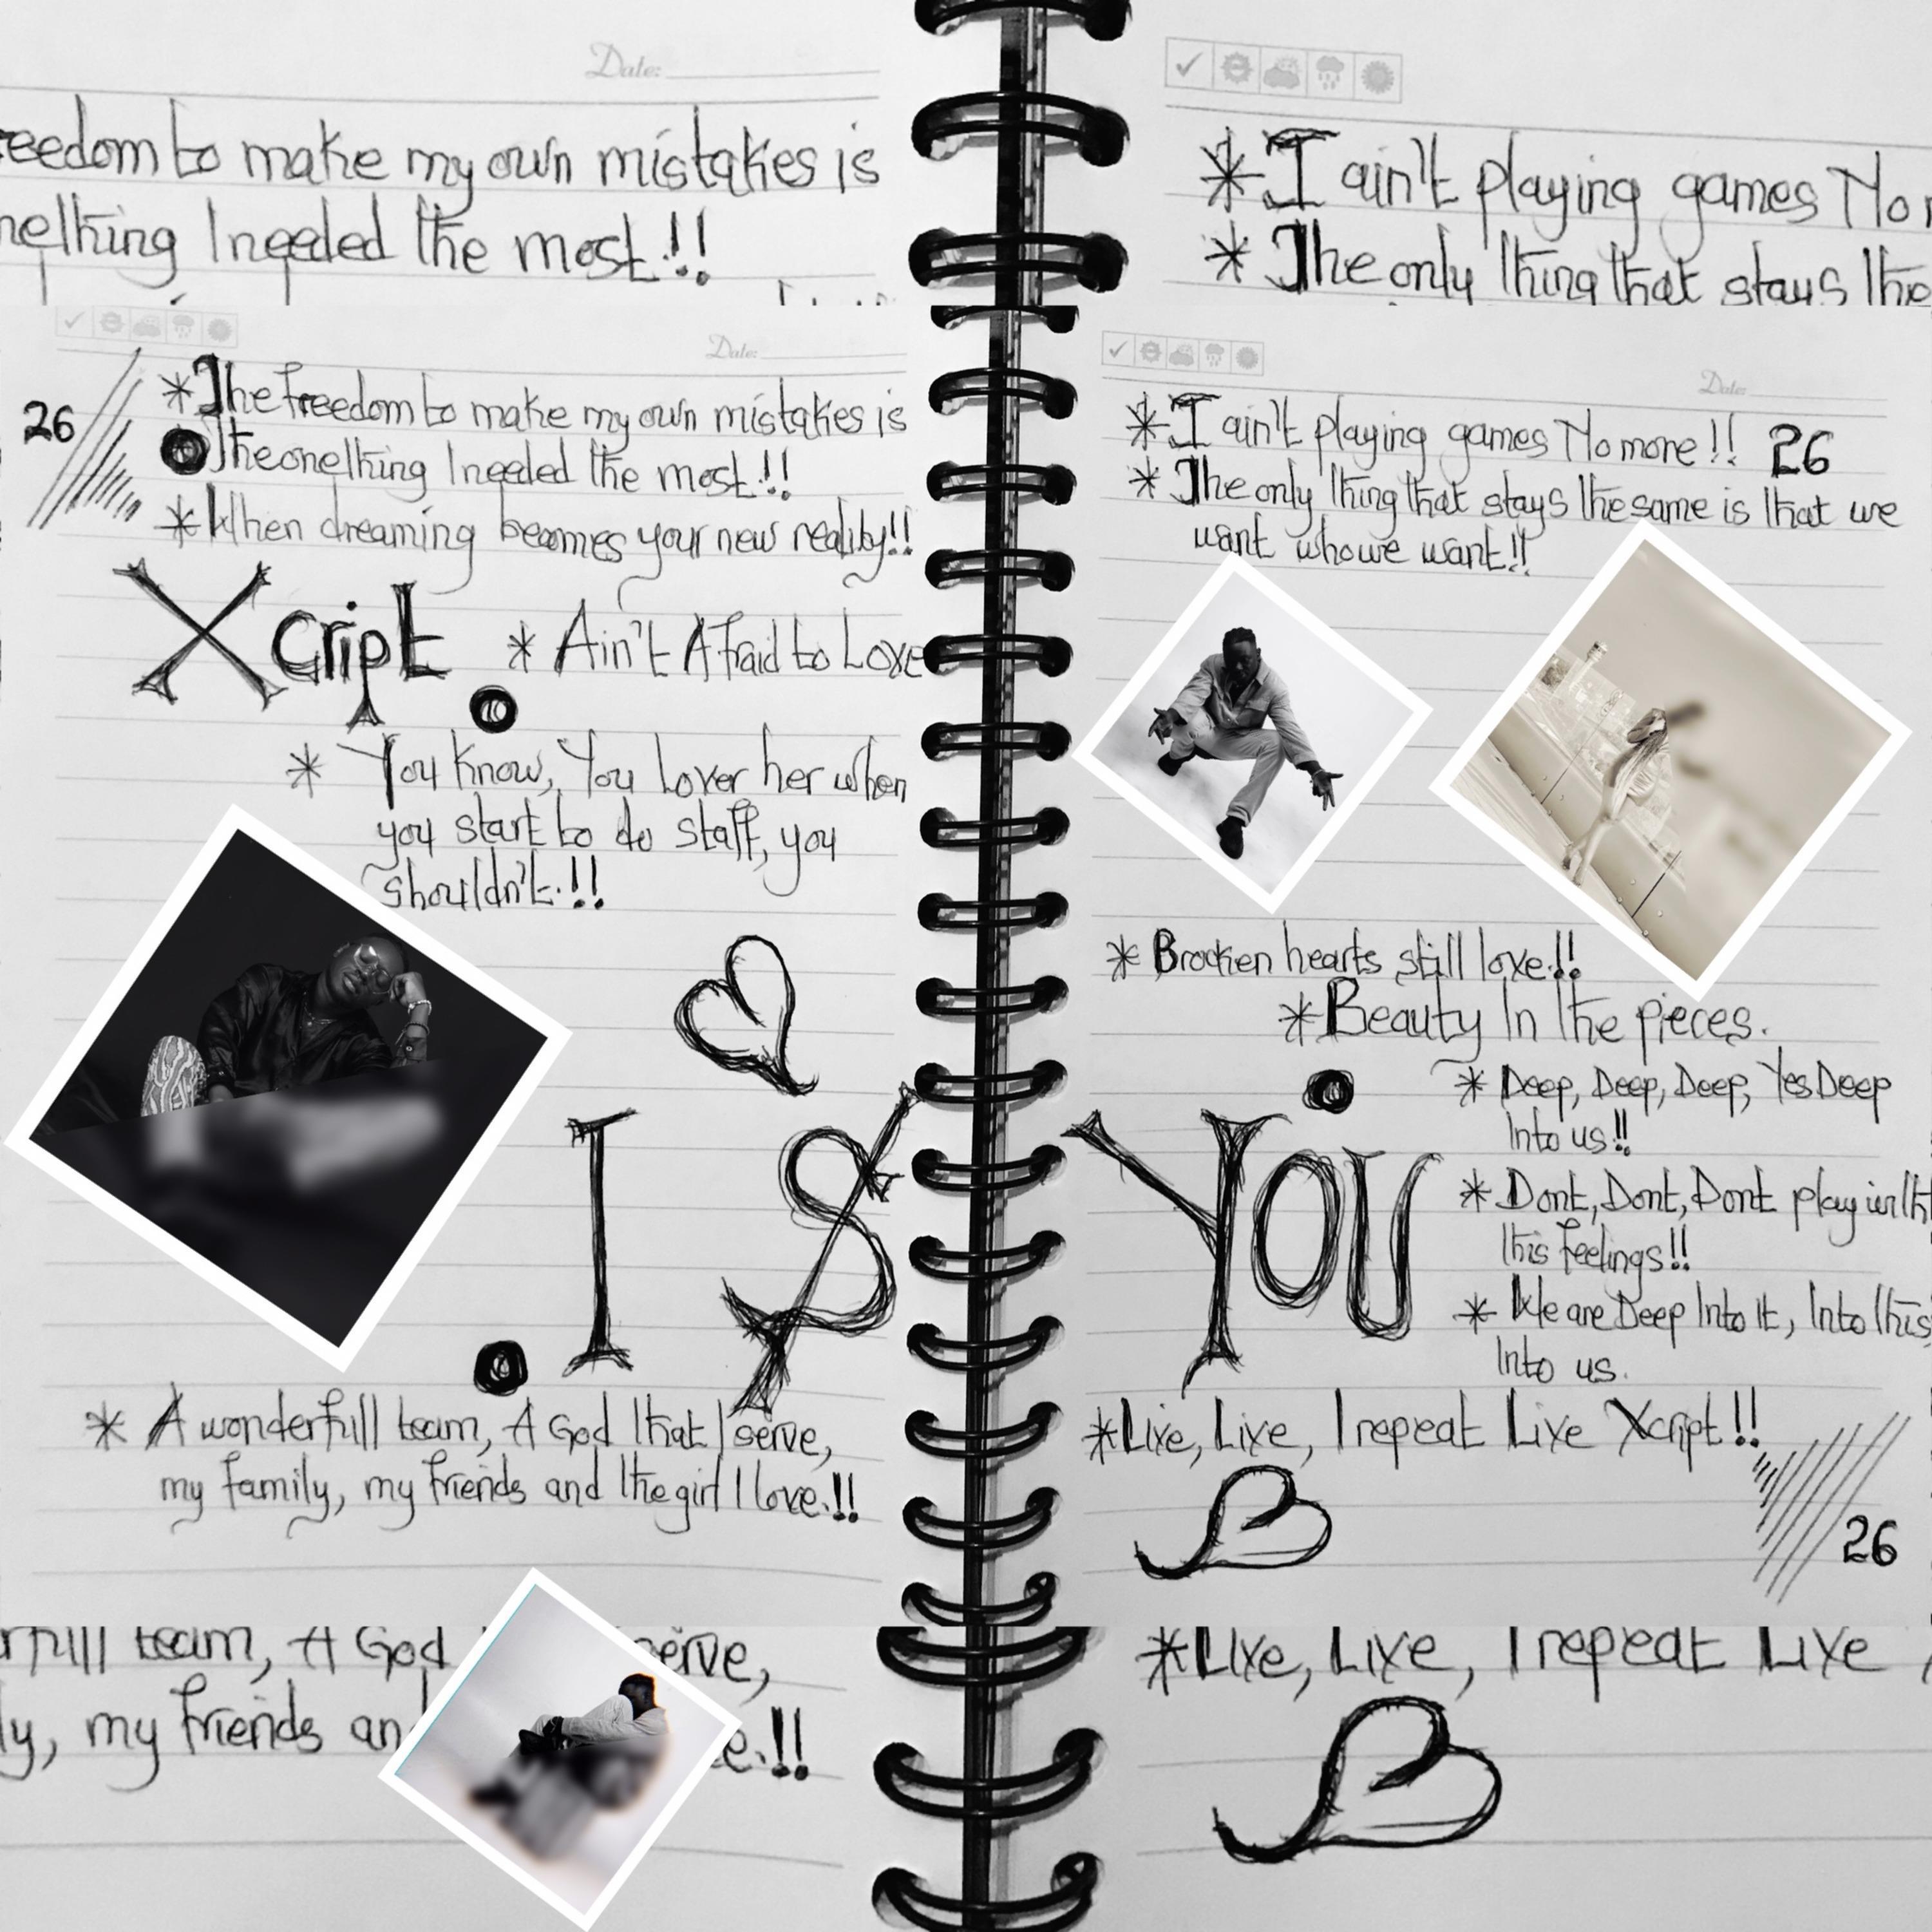 Date:
eedom to make my own mistakes is
nething I needed the most!!
*I ain't playing games No
*The only thing that stays the
Date:
26
*The freedom to make my own mistakes is
The onething I needed the most!!
*When dreaming becomes your new reality!!
Xcript
* Ain't Afraid to Love
* You know, You Lover her when
you start to do staff, you
shouldn't!!
I S
* A wonderfull team, A God that I serve,
my family, my friends and the girl I love.!!
Date:
*I ain't playing games No more!! 26
*The only thing that stays the same is that we
want who we want!!
* Brocken hearts still love!!
*Beauty In the pieces.
* Deep, Deep, Deep, Yes Deep
Into us!!
YOU
* Dont, Dont, Dont play with
this feelings!!
* We are Deep Into It, Into this
Into us.
*Live, Live, I repeat Live Xcript!!
26
rfull team, A God erve,
ly, my friends an e.!!
*Live, Live, I repeat Live